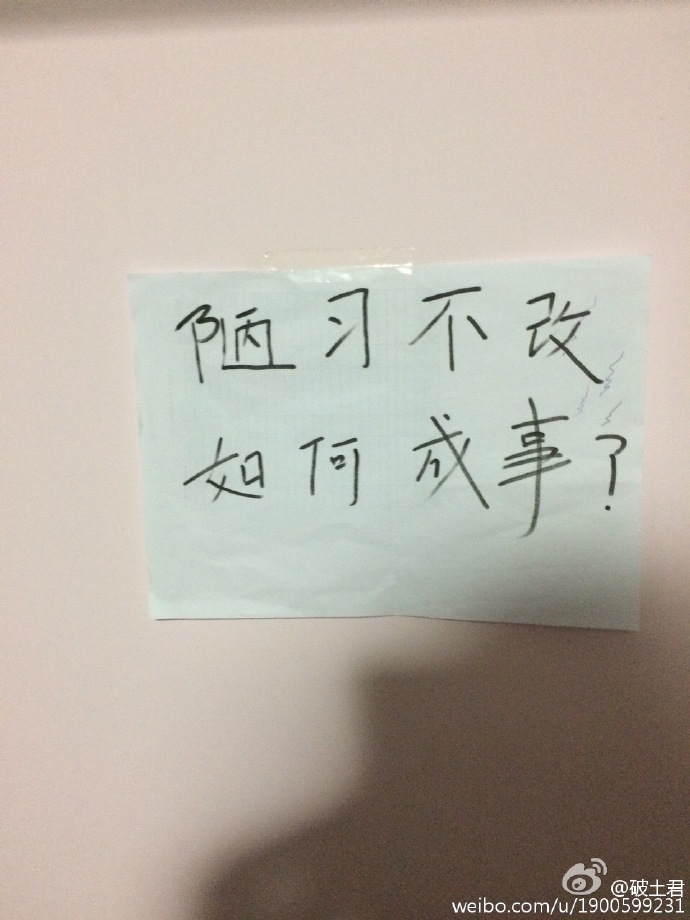 陋习不改
如何成事?
@破土君
weibo.com/u/1900599231